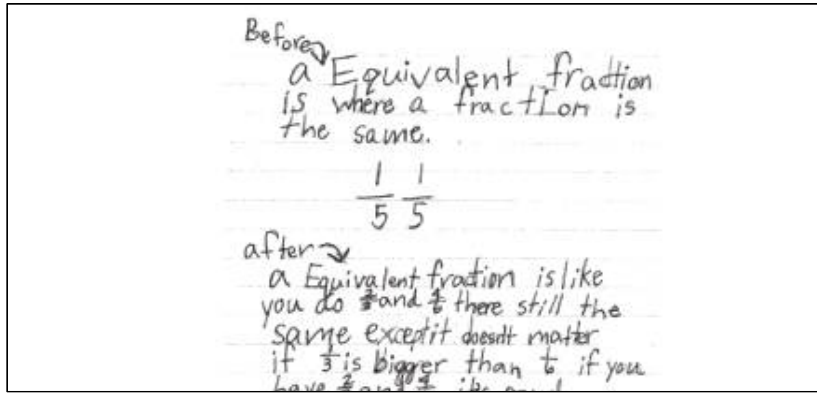 Before
a Equivalent fraction
is where a fraction is
the same.
1/5 1/5
after
a Equivalent fraction is like
you do 2/3 and 4/6 there still the
same except it doesnt matter
if 1/3 is bigger than 1/6 if you
have 2/3 and 4/6